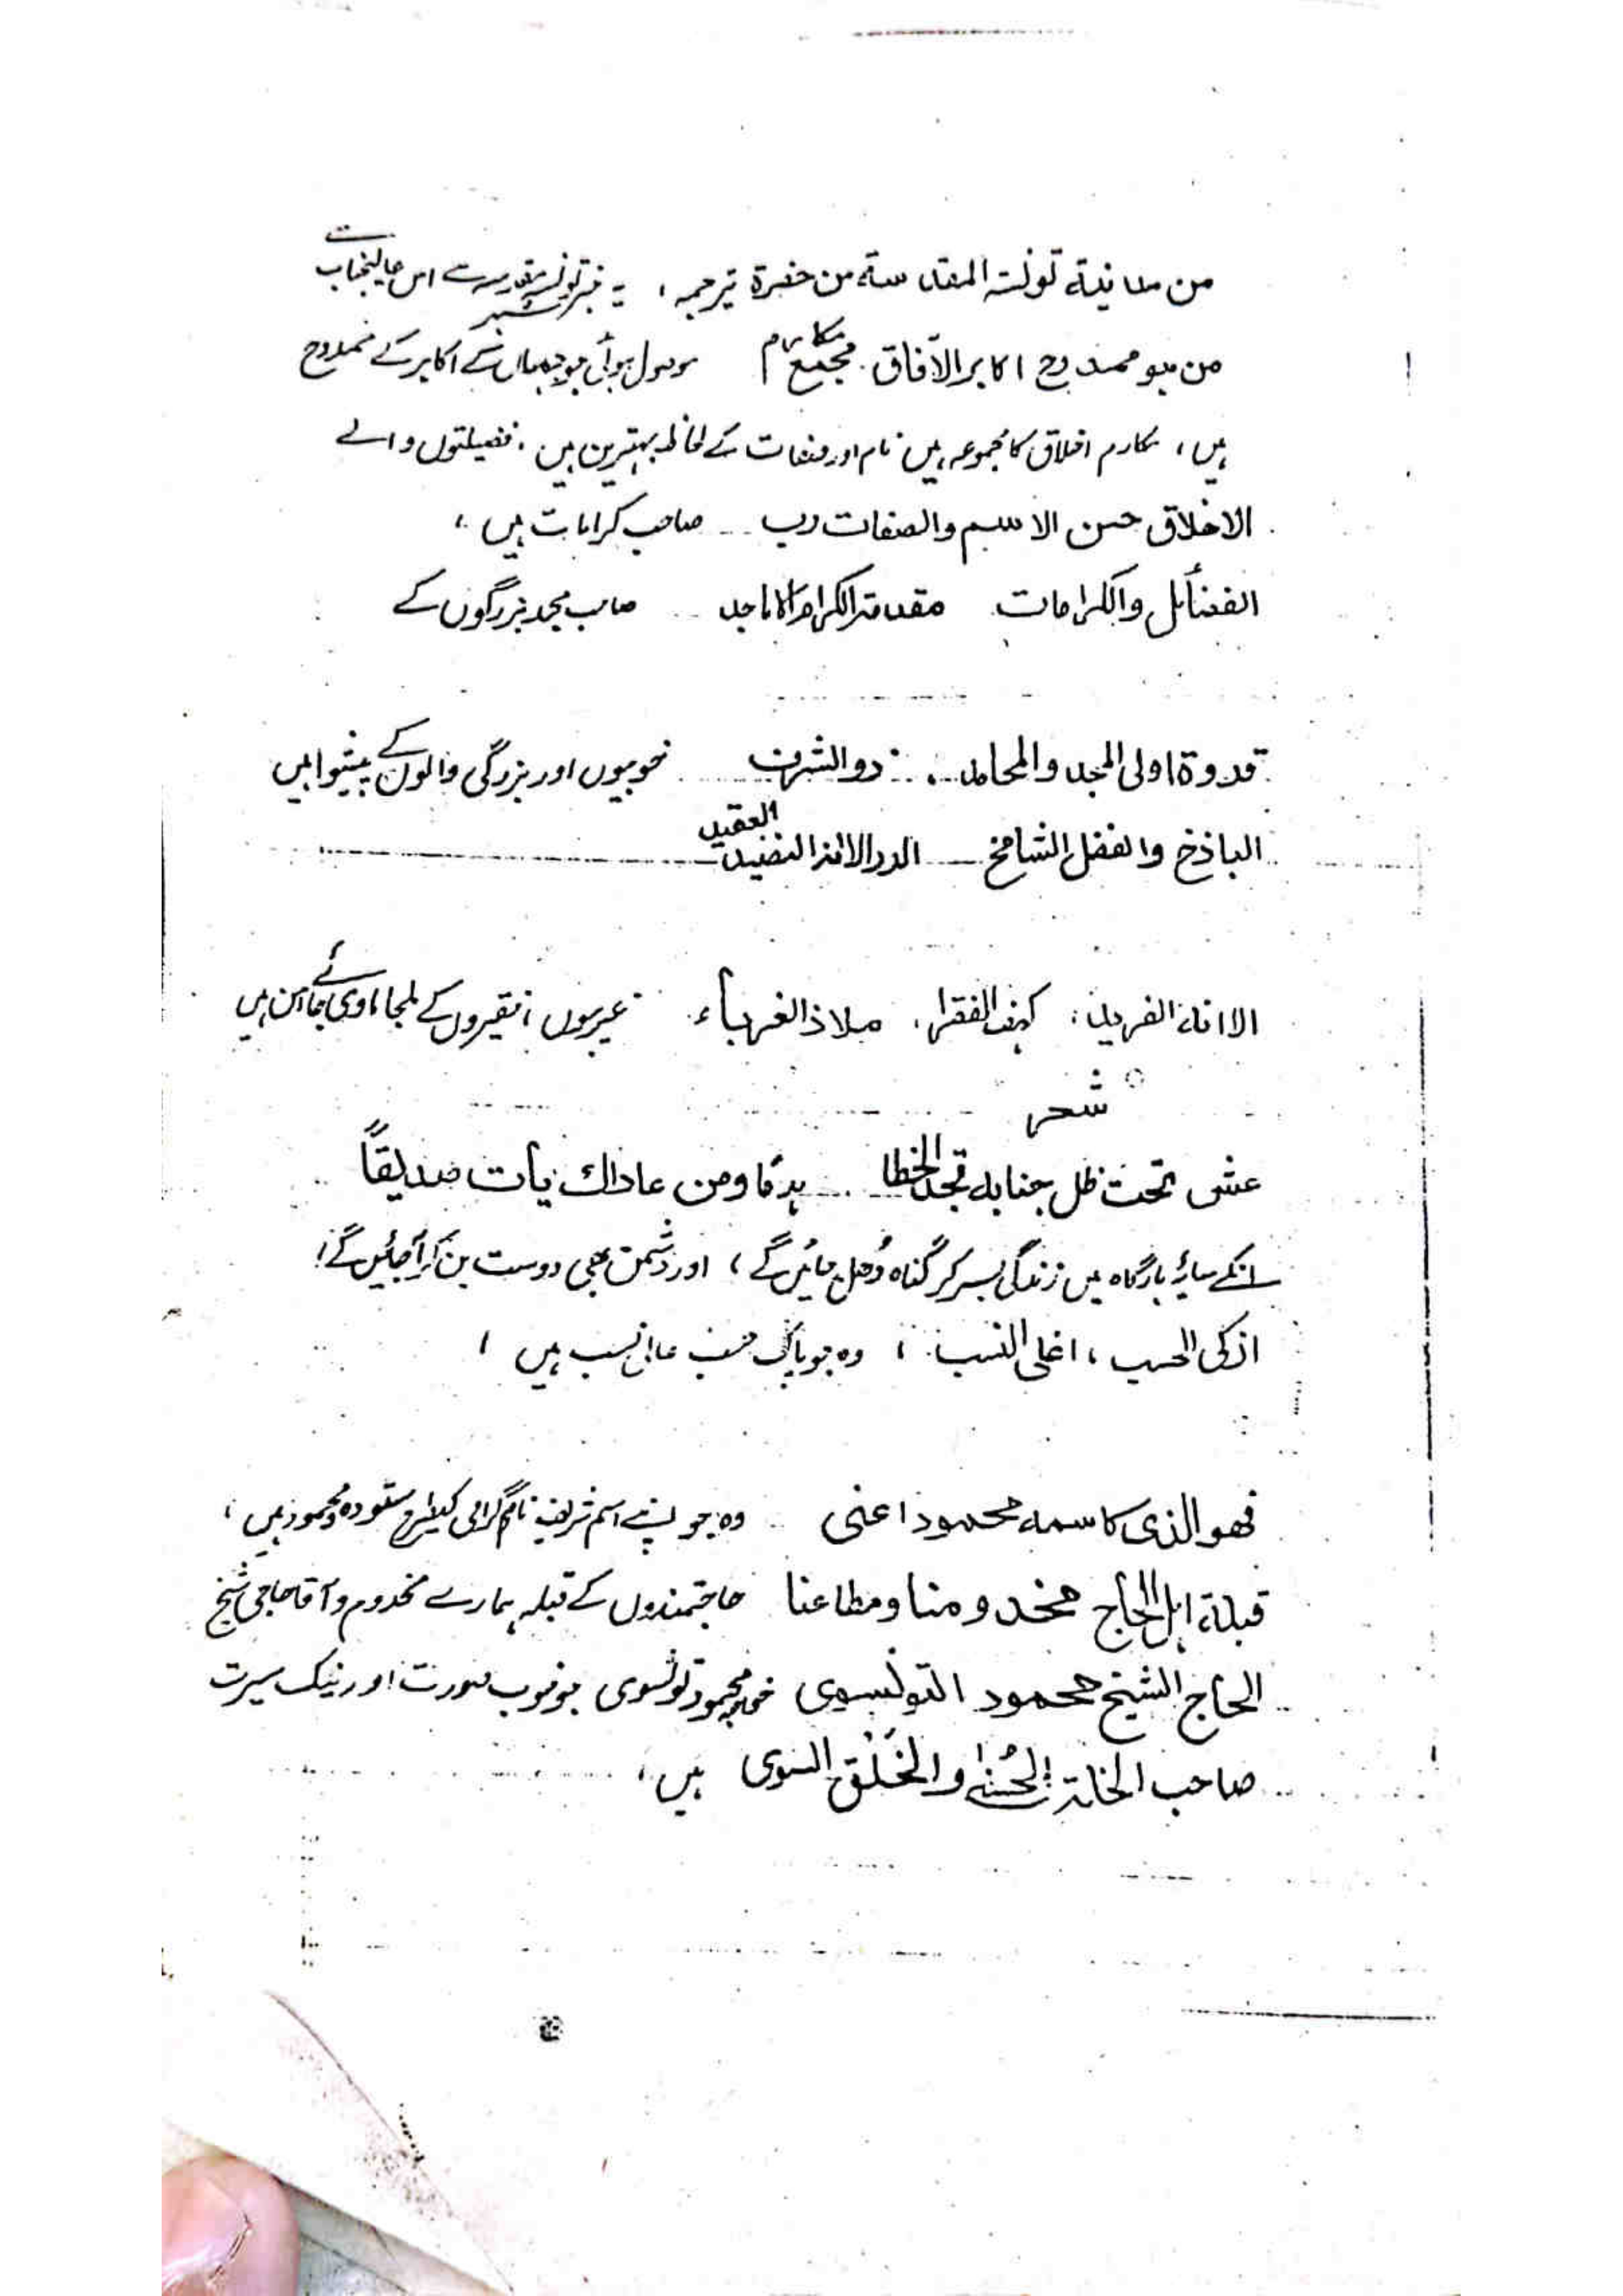 من مدینة تونسہ المقدسة من حضرة ترجمہ ، یہ خبر تونسہ مقدسہ سے اس عالیجناب سے
من ہو ممدوح اکابر الآفاق . مجمع مکارم موصول ہوئی جو جہاں کے اکابر کے ممدوح
ہیں ، مکارم اخلاق کا مجموعہ ہیں نام اور صفات کے لحاظ بہترین ہیں ، فضیلتوں والے
الاخلاق حسن الاسم والصفات رب صاحب کرامات ہیں ،
الفضائل والکرامات مقدمة الکرام الاماجد صاحب مجد بزرگوں کے
قدوة اولی المجد والمحامد . ذو الشرف خوبیوں اور بزرگی والوں کے پیشوا ہیں
الباذخ والفضل الشامخ الدر النضید العقید
الفرید ، کہف الفقراء ، ملاذ الغرباء غریبوں ، فقیروں کے ملجا ماوی جائے امن ہیں
شعر
عش تحت ظل جنابہ تجد الخطا ومن عاداك یأت صدیقاً
انکے سایۂ بارگاہ میں زندگی بسر کر گناہ دُھل جائیں گے ، اور دشمن بھی دوست بن کر آ جائیں گے ،
ازکی الحسب ، اعلی النسب ، وہ جو پاک حسب عالی نسب ہیں ،
فھو الذی کاسمہ محمود اعنی وہ جو اپنے اسم شریف نام گرامی کیطرح ستودہ و محمود ہیں ،
قبلة اہل الحاج مخدومنا ومطاعنا حاجتمندوں کے قبلہ ہمارے مخدوم و آقا حاجی شیخ
الحاج الشیخ محمود التونسوی خواجہ محمود تونسوی جو خوب صورت اور نیک سیرت
صاحب الخلقة الحسنة والخُلُق السوی ہیں ،